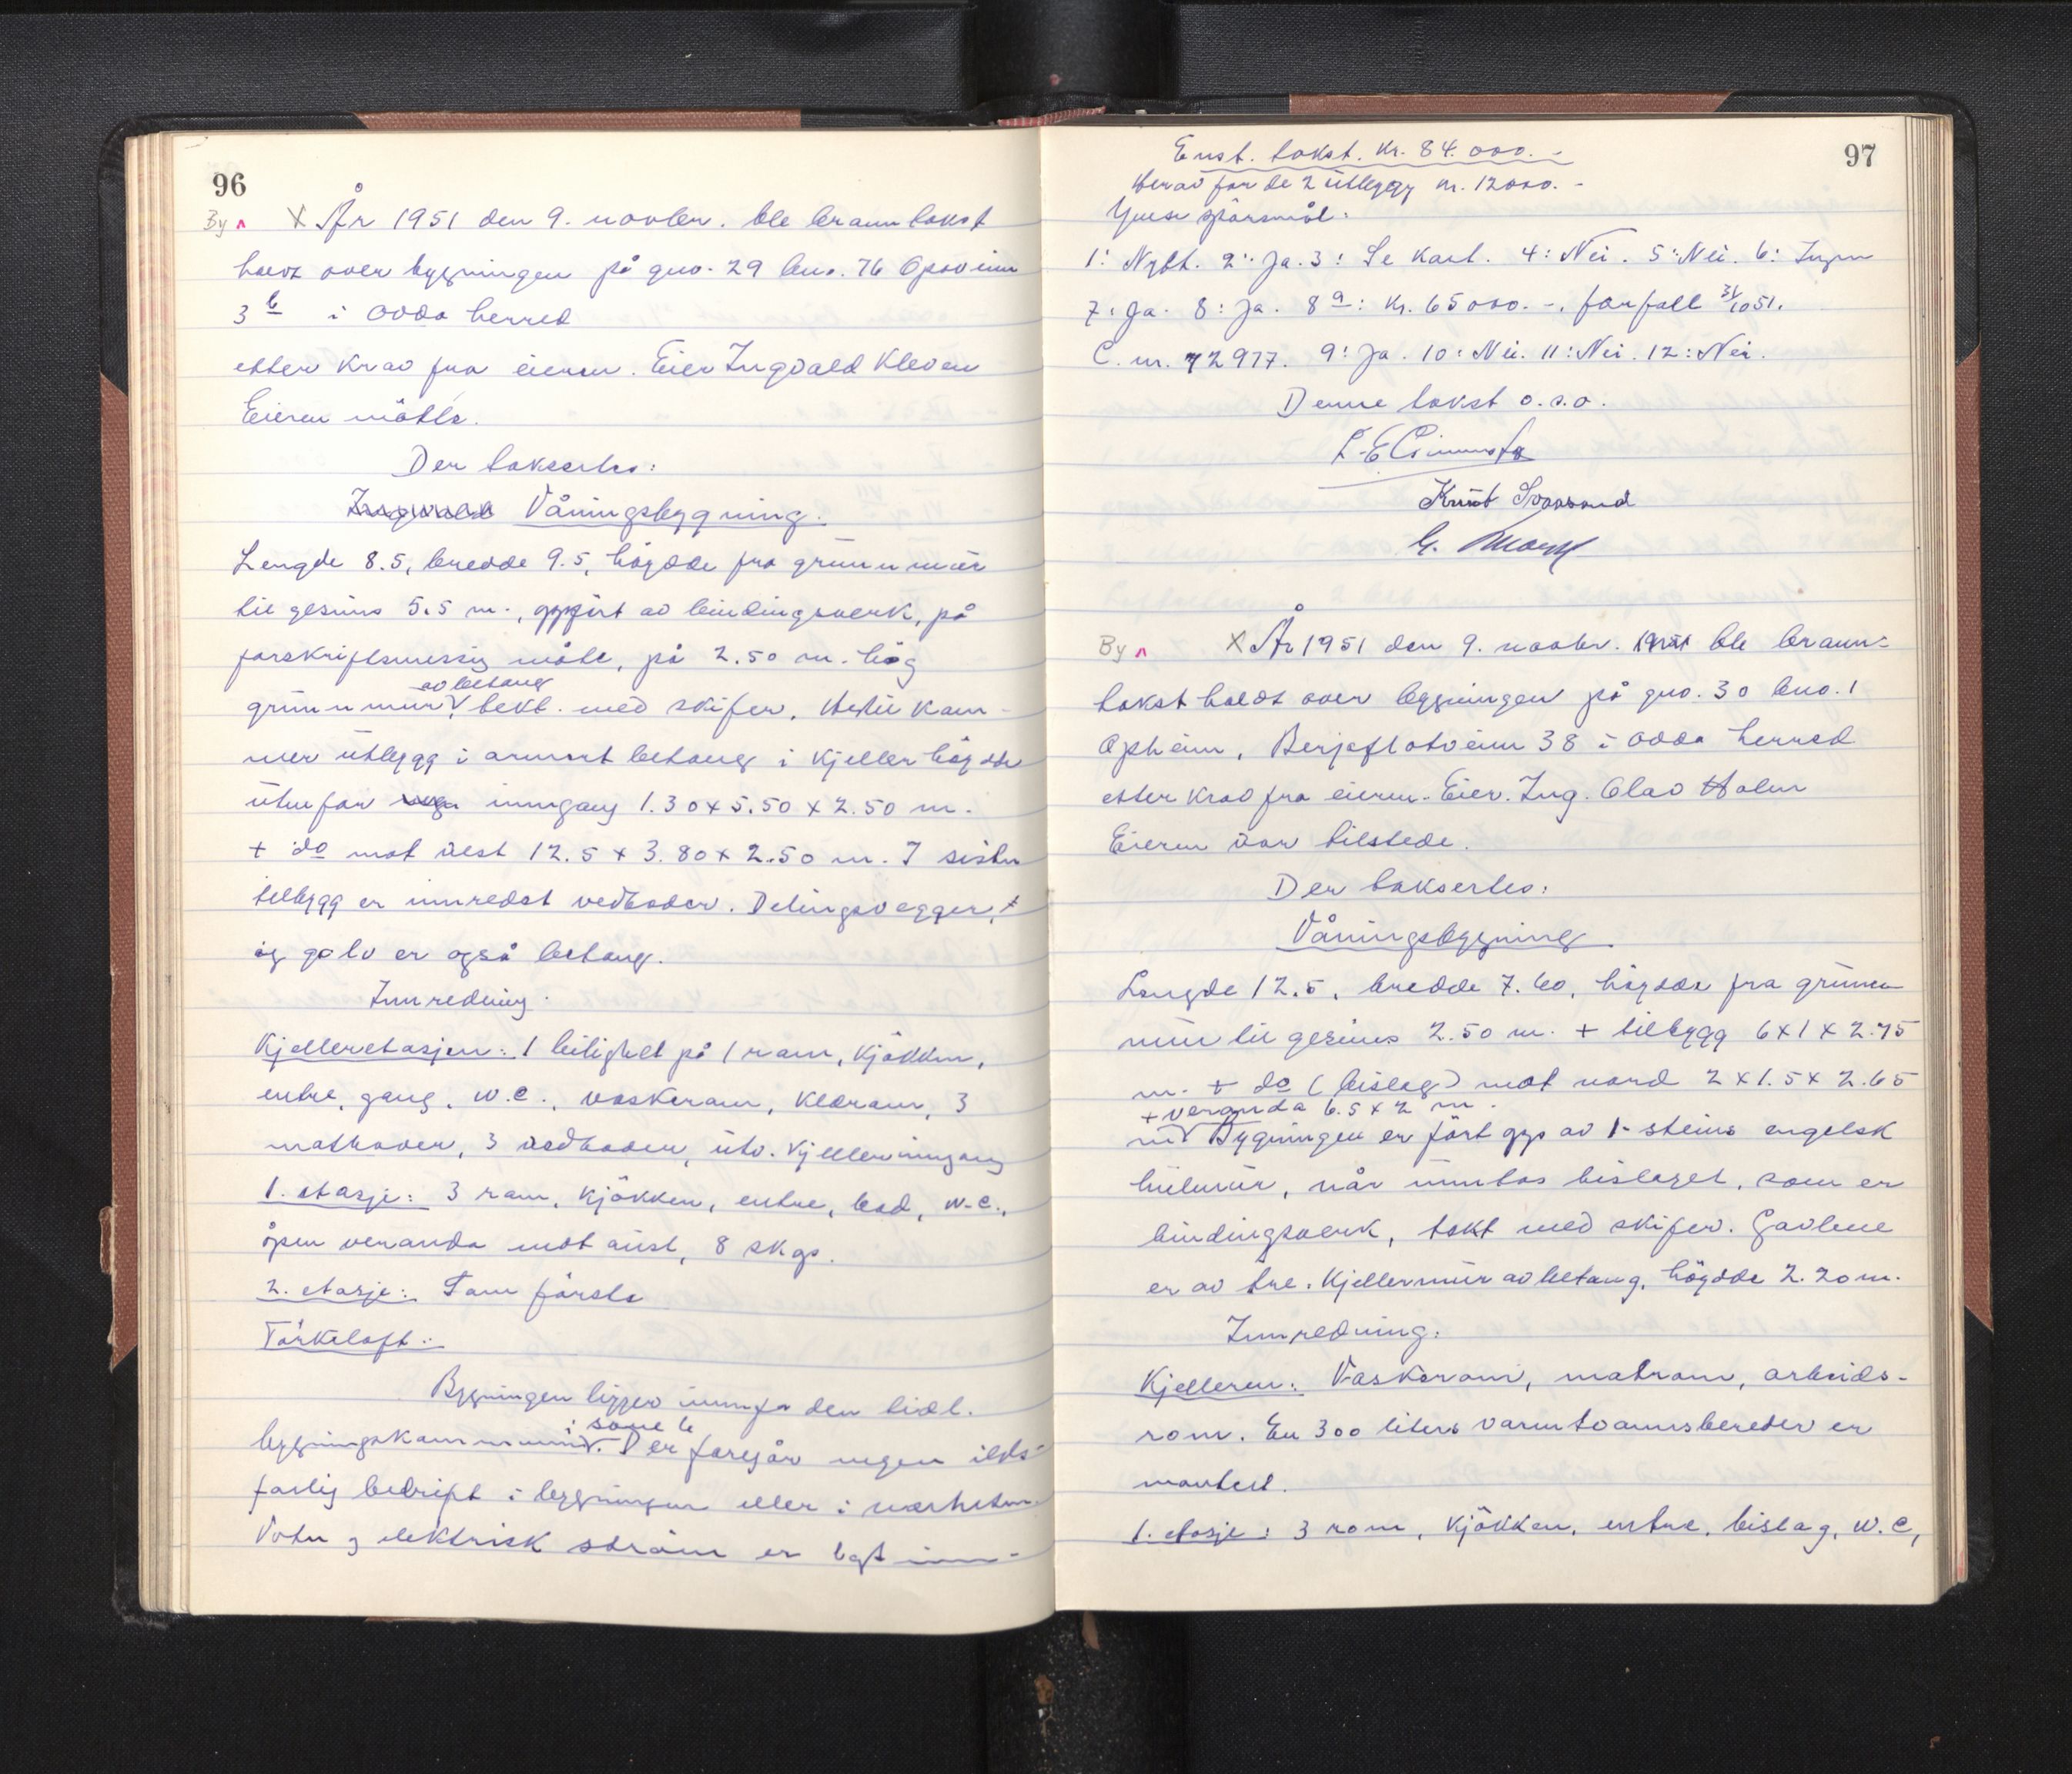 96
By ^ X År 1951 den 9. novbr. ble branntakst
holdt over bygningen på gno. 29 bno. 76 Opoveien
3 b i Odda herred
etter krav fra eieren. Eier Ingvald Kleven
Eieren mötte.
Der takserles:
Våningsbygning.
Lengde 8.5, bredde 9.5, högdde fra grunnmur
til gesims 5.5 m., oppfört av bindingsverk, på
forskriftsmessig måte, på 2.50 m. hög
av betong
grunnmur V, tekt. med skifer. Dertil kom-
mer utbygg i armert betong i kjeller högdde
utenfor inngang 1.30 x 5.50 x 2.50 m.
+ do mot vest 12.5 x 3.80 x 2.50 m. I siste
tilbygg er innredet vedboder. Delingsvegger,
og golv er også betong.
Innredning.
Kjelleretasjen: 1 leilighet på 1 rom, kjökken,
entre, gang, w.c., vaskerom, klærom, 3
matboder, 3 vedboder, utv. kjellerinngang
1. etasje: 3 rom, kjökken, entre, bad, w.c.,
åpen veranda mot aust, 8 skgs.
2. etasje: Som förste
Törkeloft:
Bygningen ligger innafor den tidl.
i sone b
bygningskommune V. Der foregår ingen ilds-
farlig bedrift i bygningen eller i nærheten.
Vatn og elektrisk ström er lagt inn.
97
Enst. takst. kr. 84.000.-
Herav for de 2 utbygg kr. 12000.-
Ymse spörsmål:
1: Nybt. 2: Ja. 3: Se kart. 4: Nei. 5: Nei. 6: Ingen
7: Ja. 8: Ja. 8 a: kr. 65000.-, forfall 31/10 51.
C. nr. 72977. 9: Ja. 10: Nei. 11: Nei. 12: Nei.
Denne takst o.s.o.
Knut
G.
By ^ X År 1951 den 9. novbr. ble brann-
takst holdt over bygningen på gno. 30 bno. 1
Opheim, Berjeflotveien 38 i Odda herred
etter krav fra eieren. Eier. Ing. Olav Holm
Eieren var tilstede.
Der takserles:
Våningsbygning.
Lengde 12.5, bredde 7.60, högdde fra grunn
mur til gesims 2.50 m. + tilbygg 6 x 1 x 2.75
m. + do (bislag) mot nord 2 x 1.5 x 2.65
+ veranda 6.5 x 2 m.
m V Bygningen er fört opp av 1- steins engelsk
hulmur, når unntas bislaget, som er
bindingsverk, tekt med skifer. Gavlene
er av tre. Kjellermur av betong, högdde 2.20 m.
Innredning:
Kjelleren: Vaskerom, matrom, arbeids-
rom. En 300 liters varmtvannsbereder er
montert.
1. etasje: 3 rom, kjökken, entre, bislag, w.c,